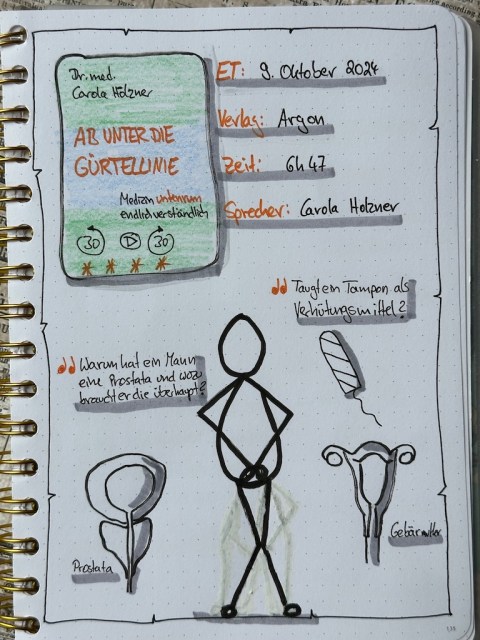 Dr. med.
Carola Holzner
AB UNTER DIE
GÜRTELLINIE
Medizin untenrum
endlich verständlich
30 30
ET: 9. Oktober 2024
Verlag: Argon
Zeit: 6h 47
Sprecher: Carola Holzner
Taugt ein Tampon als
Verhütungsmittel?
Warum hat ein Mann
eine Prostata und wozu
braucht er die überhaupt?
Prostata
Gebärmutter